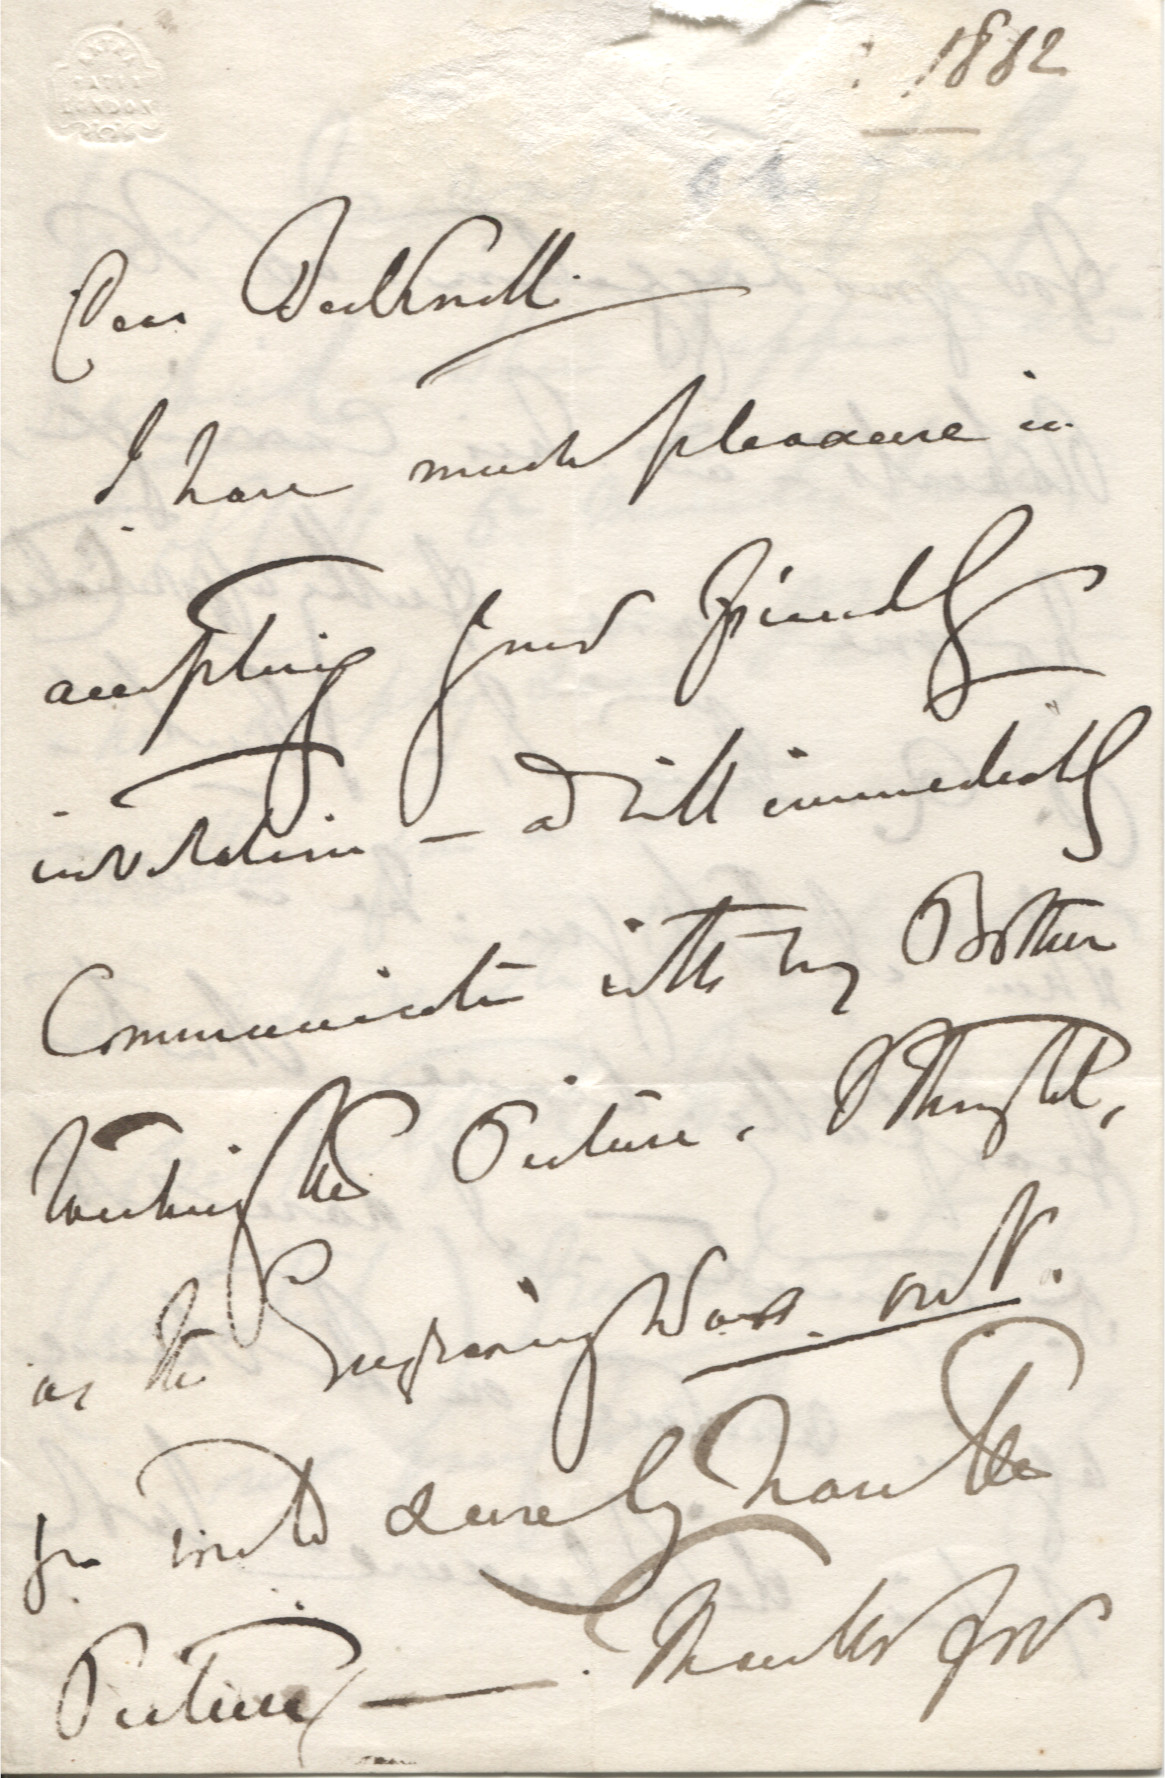 1882
Dear Bicknell
I have much pleasure in
accepting your friendly
invitation — & will immediately
Communicate with my Brother
touching the Picture. I thought,
as the Engraving was out.
you would surely have the
Picture — . Thanks for